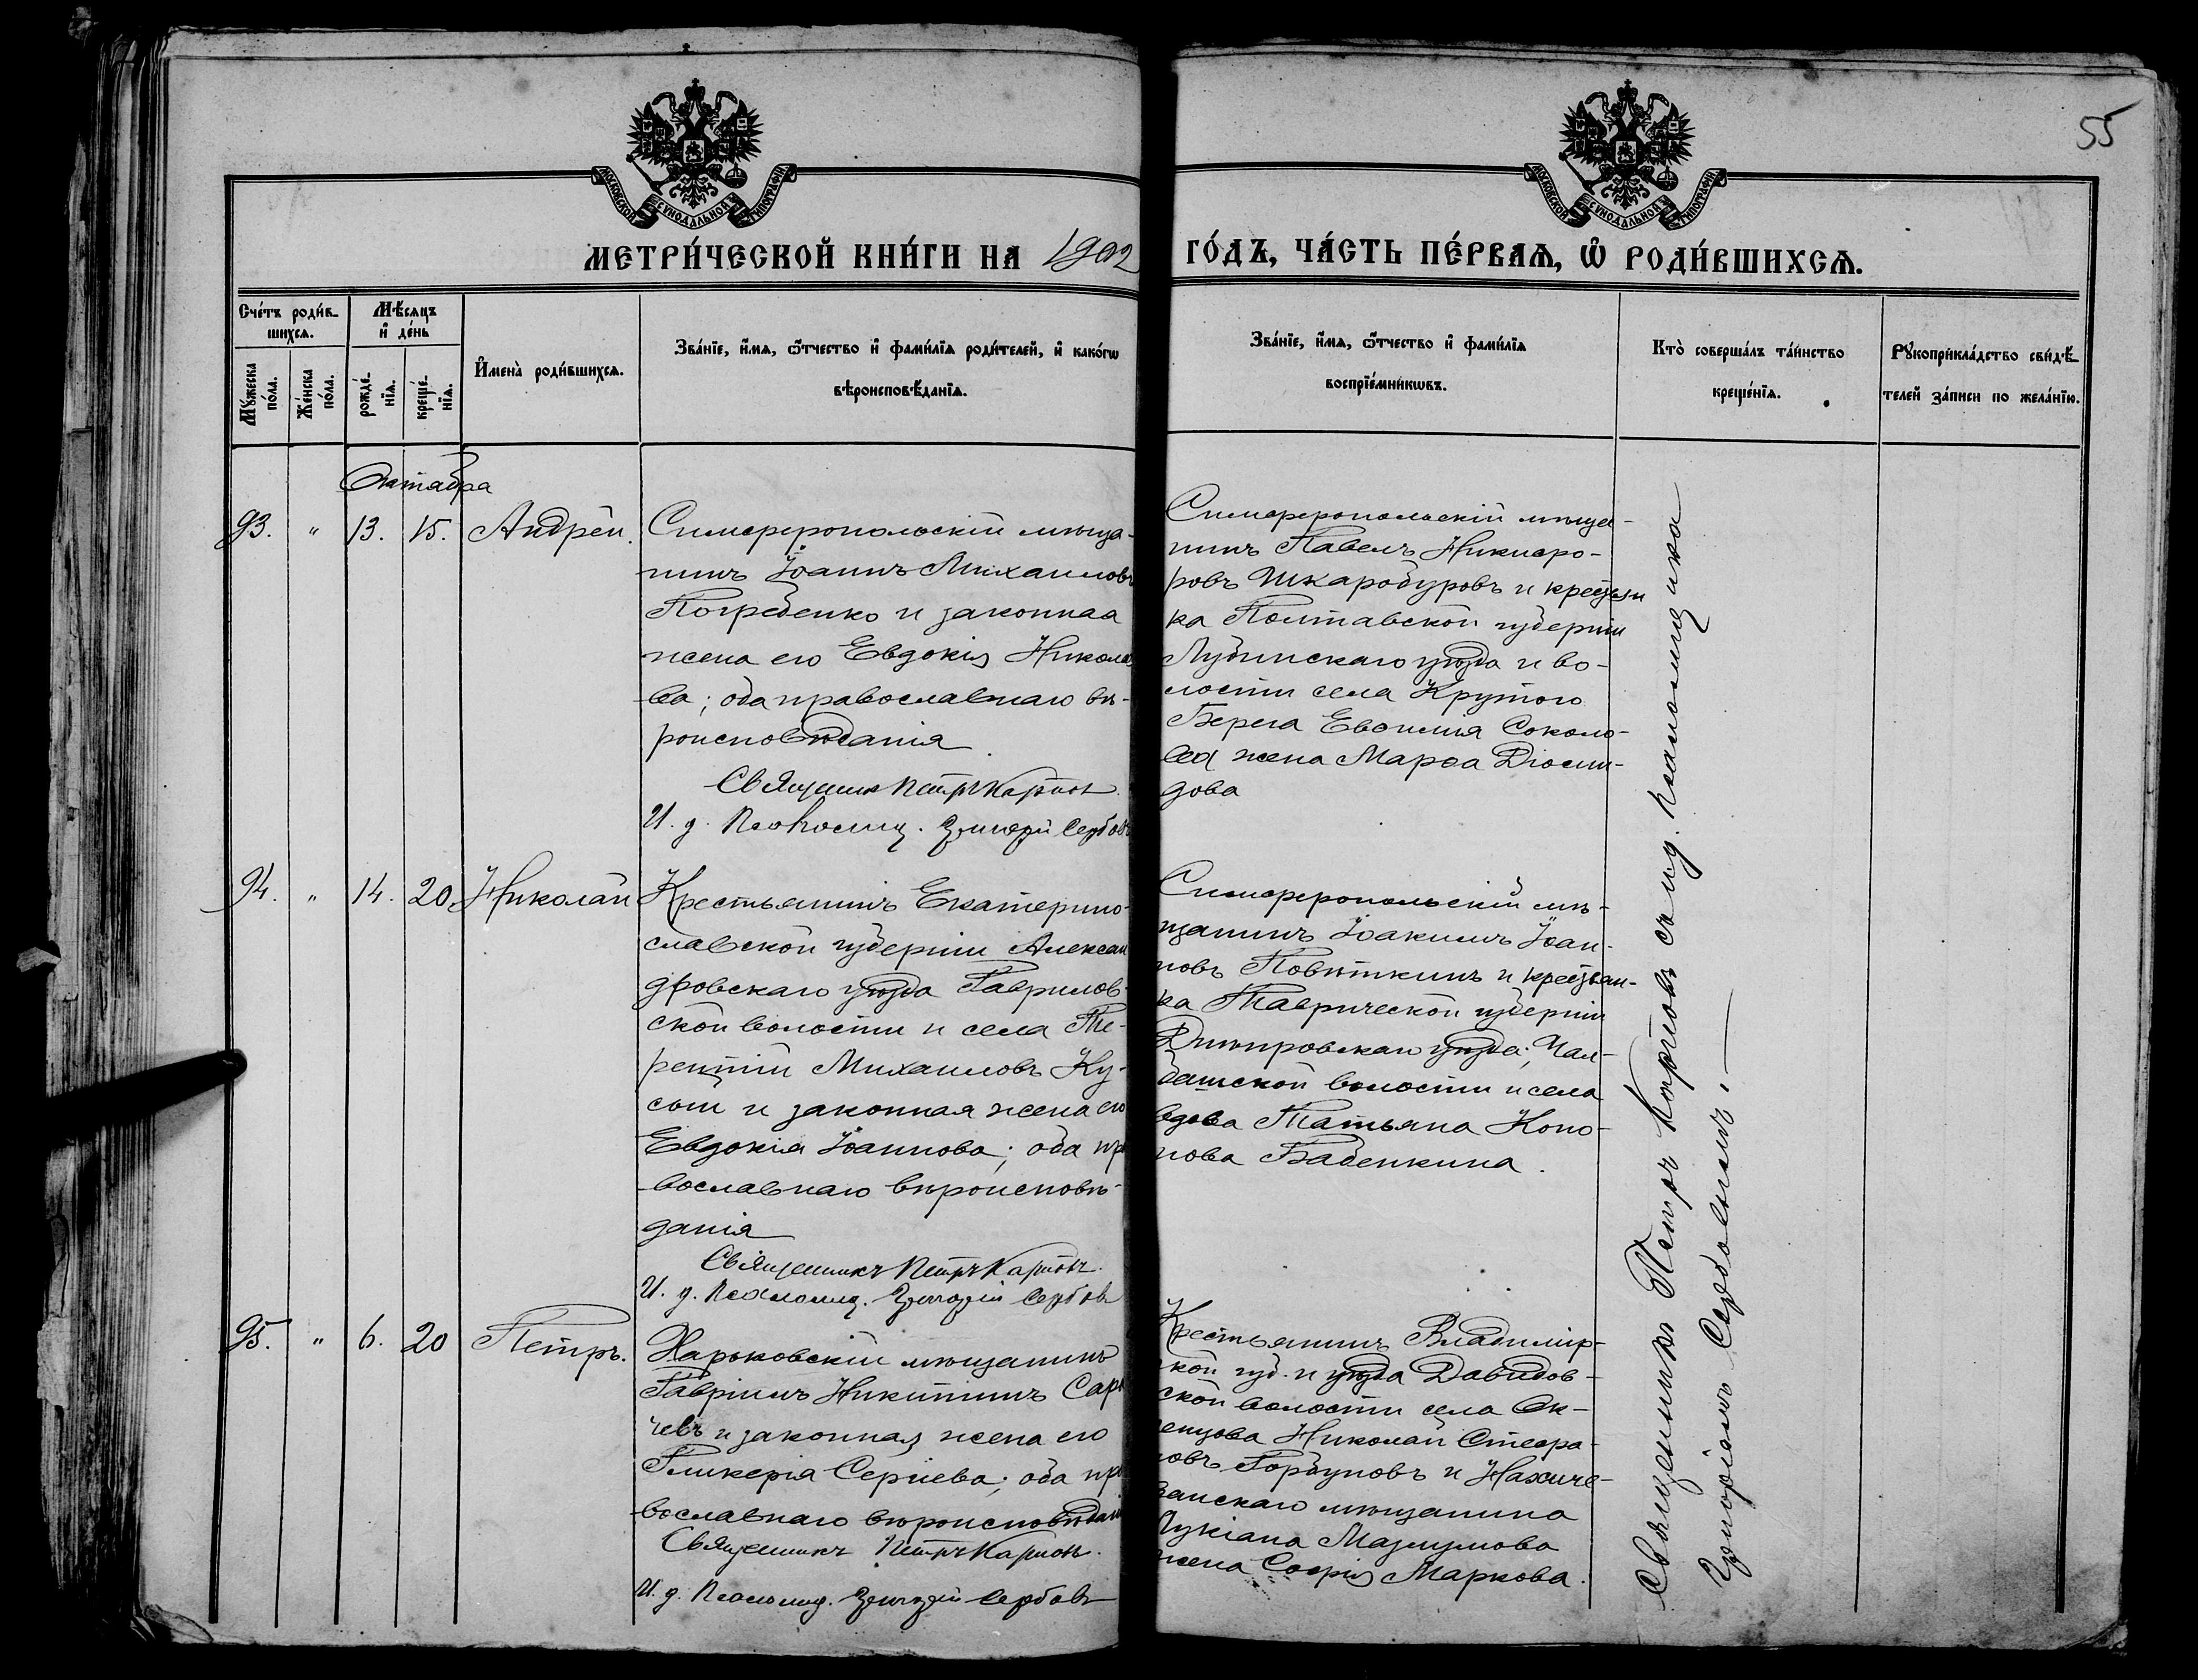 55
МОСКОВСКОЙ СѴНОДАЛЬНОЙ ТИПОГРАФІИ
МОСКОВСКОЙ СѴНОДАЛЬНОЙ ТИПОГРАФІИ
МЕТРИ́ЧЕСКОЙ КНИ́ГИ НА 1902 ГО́ДЪ, ЧА́СТЬ ПЕ́РВАѦ, Ѡ҆ РОДИ́ВШИХСѦ.
Сче́тъ роди́в-
шихсѧ.
Мꙋ́жеска
по́ла.
Же́нска
по́ла.
Мѣ́сѧцъ
и҆ де́нь
рожде́-
нїѧ.
креще́-
нїѧ.
И҆мена̀ роди́вшихсѧ.
Зва́нїе, и҆́мѧ, ѻ҆́тчество и҆ фами́лїѧ роди́телей, и҆ како́гѡ
вѣроисповѣ́данїѧ.
Зва́нїе, и҆́мѧ, ѻ҆́тчество и҆ фами́лїѧ
воспрїе́мникѡвъ.
Кто̀ соверша́лъ та́инство
креще́нїѧ.
Рꙋкоприкла́дство свидѣ́-
телей за́писи по жела́нїю.
Октября
93. " 13. 15. Андрей.
Симферопольскій мѣща-
нинъ Іоаннъ Михаиловъ
Погребенко и законная
жена его Евдокія Никола
ева; оба православнаго вѣ-
роисповѣданія.
Священникъ Петръ Карповъ.
И. д. Псаломщ. Григорій Сербовъ
Симферопольскій мѣща-
нинъ Павелъ Никифо-
ровъ Шкаробуровъ и крестьян
ка Полтавской губерніи
Лубенскаго уѣзда и во-
лости села Крутого
Берега Евѳимія Соколо-
ва жена Марѳа Діоми-
дова
94. " 14. 20. Николай
Крестьянинъ Екатерино-
славской губерніи Алексан
дровскаго уѣзда Гаврилов-
ской волости и села Те-
рентій Михаиловъ Ку-
сый и законная жена его
Евдокія Іоаннова; оба пра
вославнаго вѣроисповѣ-
данія
Священникъ Петръ Карповъ.
И. д. Псаломщ. Григорій Сербовъ
Симферопольскій мѣ-
щанинъ Іоакимъ Іоан-
новъ Повѣткинъ и крестьян-
ка Таврической губерніи
Днѣпровскаго уѣзда, Чал-
башской волости и села
вдова Татьяна Коно-
нова Бабенкина.
95. " 6. 20 Петръ.
Харьковскій мѣщанинъ
Гавріилъ Никитинъ Сары
чевъ и законная жена его
Гликерія Сергіева; оба пра
вославнаго вѣроисповѣданія
Священникъ Петръ Карповъ.
И. д. Псаломщ. Григорій Сербовъ
Крестьянинъ Владимір-
ской губ. и уѣзда Давыдов-
ской волости села
Николай Стефа-
новъ Горбуновъ и Нахиче-
ванскаго мѣщанина
Лукіана Мазлумова
жена Софія Маркова.
Священникъ Петръ Карповъ съ и.д. псаломщика
Григоріемъ Сербовымъ.